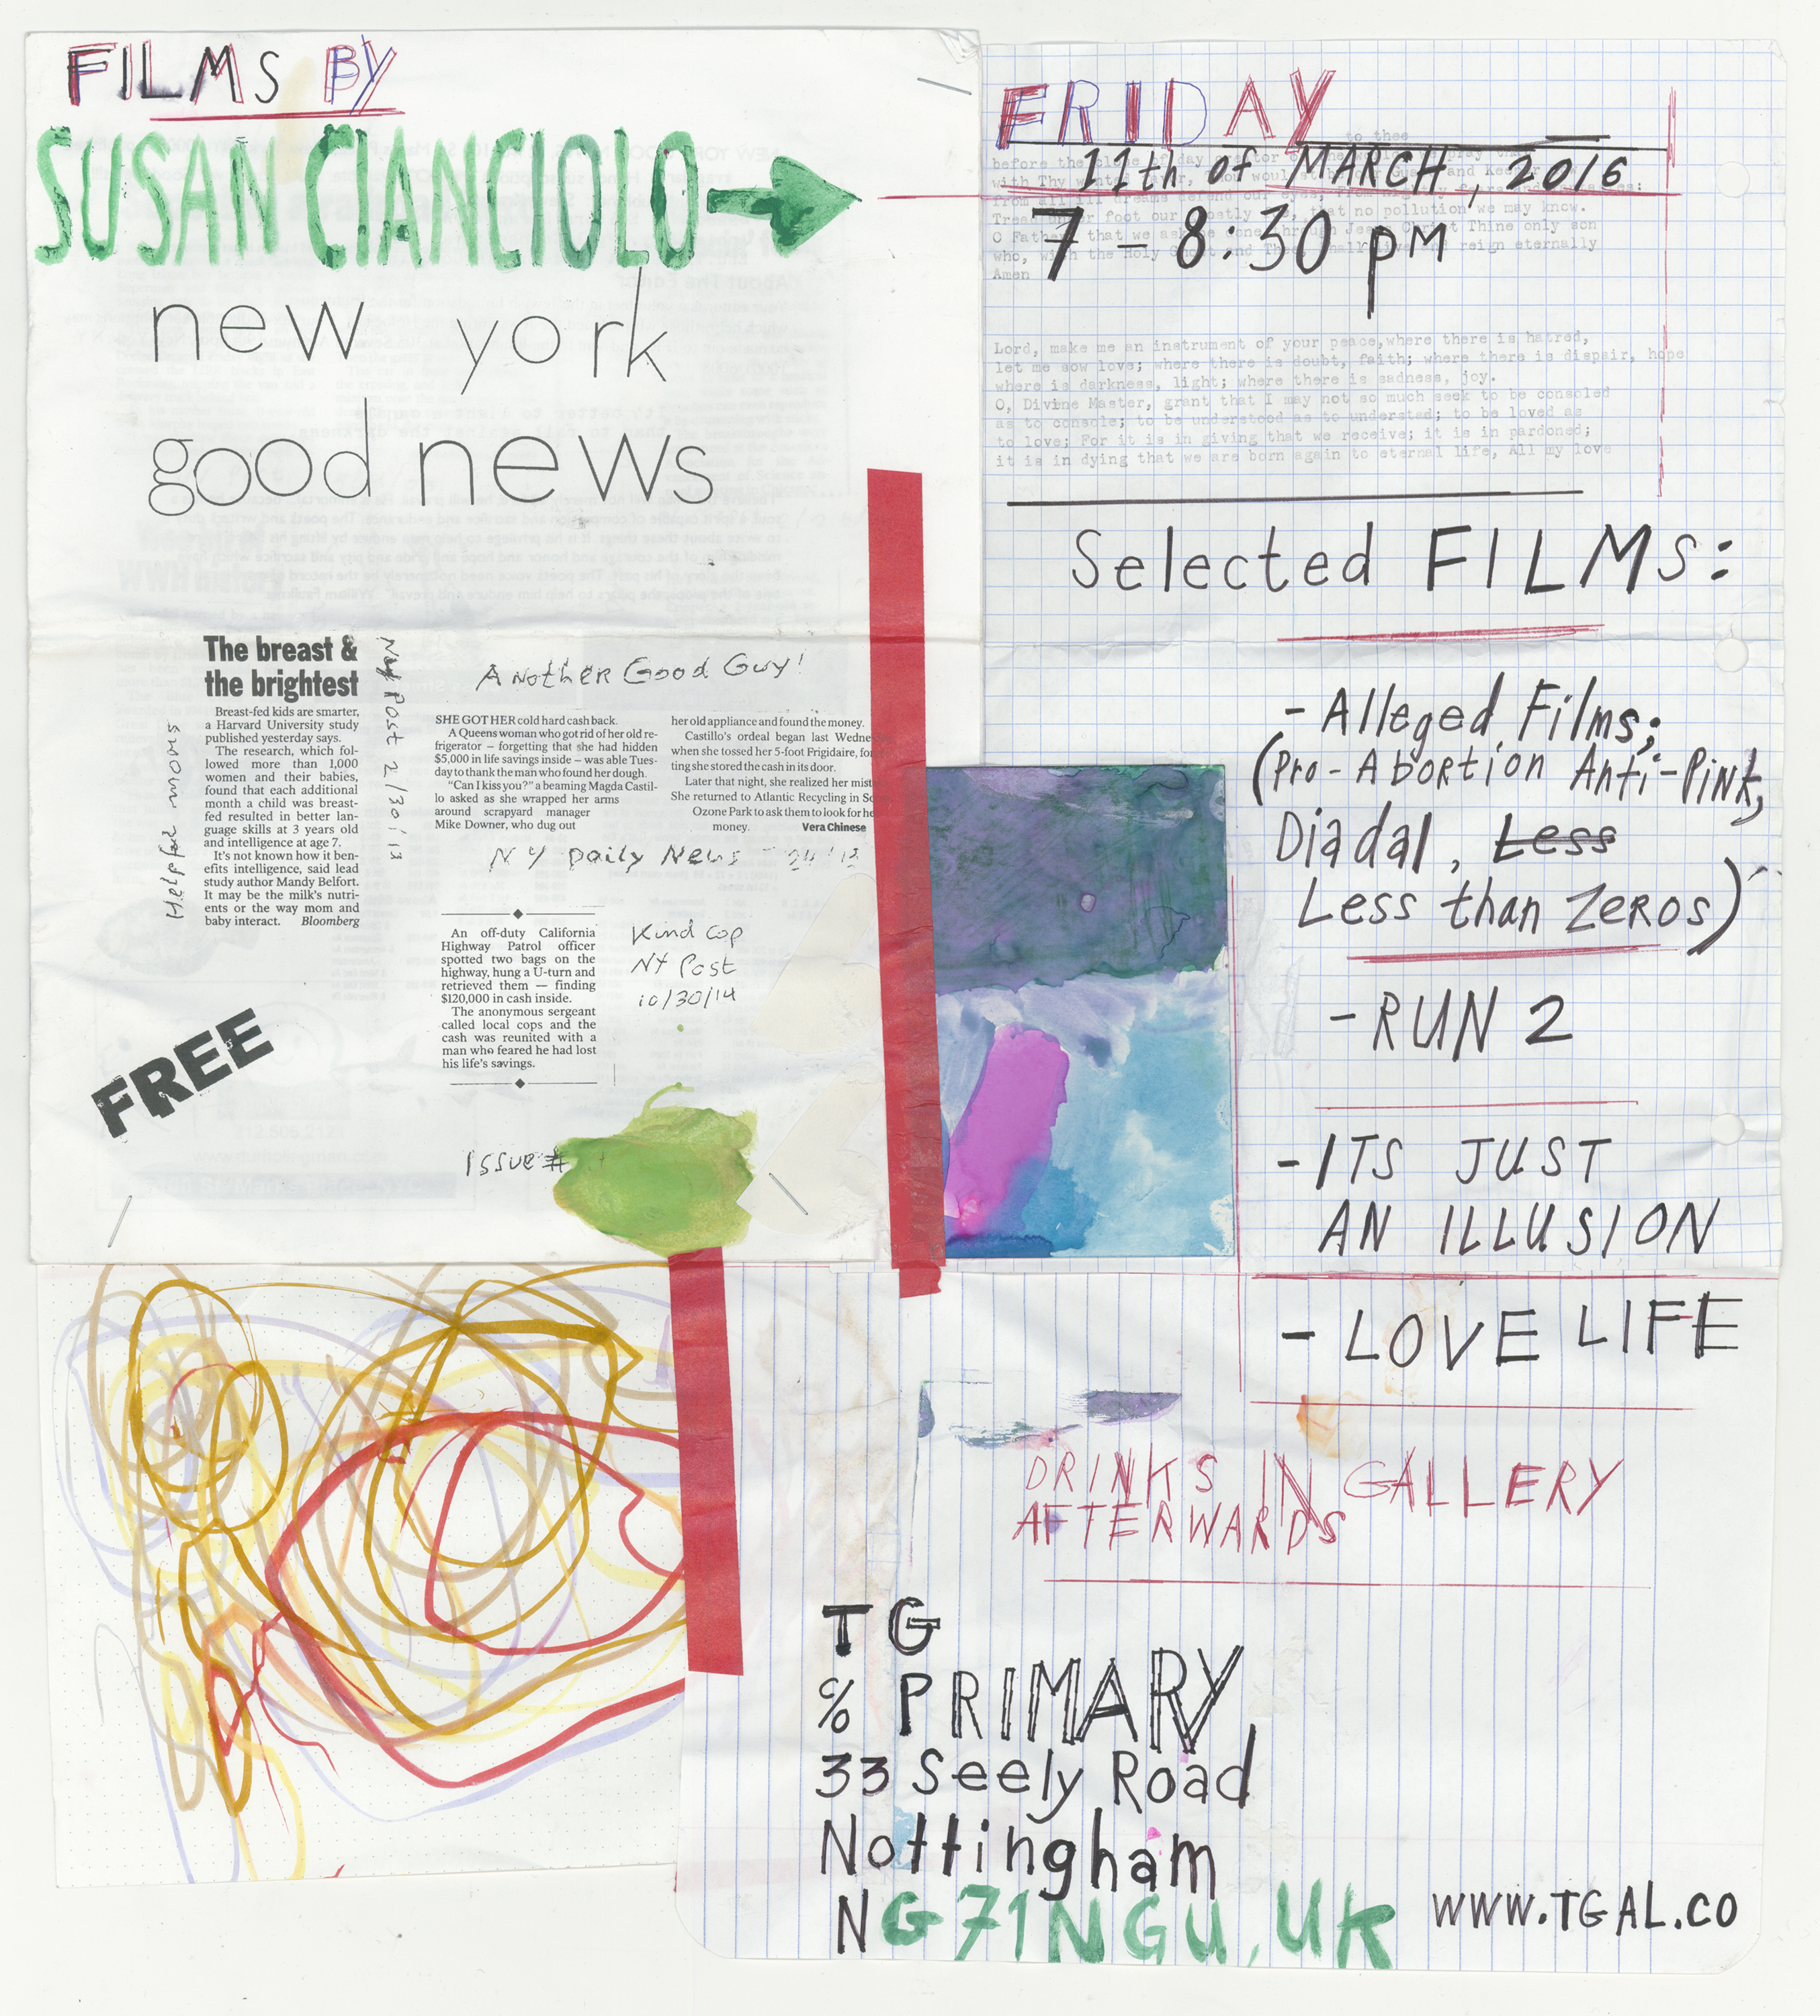 FILMS BY
SUSAN CIANCIOLO
new york
good news
The breast &
the brightest
Breast-fed kids are smarter,
a Harvard University study
published yesterday says.
The research, which fol-
lowed more than 1,000
women and their babies,
found that each additional
month a child was breast-
fed resulted in better lan-
guage skills at 3 years old
and intelligence at age 7.
It's not known how it ben-
efits intelligence, said lead
study author Mandy Belfort.
It may be the milk's nutri-
ents or the way mom and
baby interact. Bloomberg
Help for moms
Post 2/30/13
ANOTHER Good Guy!
SHE GOT HER cold hard cash back.
A Queens woman who got rid of her old re-
frigerator – forgetting that she had hidden
$5,000 in life savings inside – was able Tues-
day to thank the man who found her dough.
"Can I kiss you?" a beaming Magda Castil-
lo asked as she wrapped her arms
around scrapyard manager
Mike Downer, who dug out
her old appliance and found the money.
Castillo's ordeal began last Wedne
when she tossed her 5-foot Frigidaire, for
ting she stored the cash in its door.
Later that night, she realized her mist
She returned to Atlantic Recycling in So
Ozone Park to ask them to look for he
money. Vera Chinese
NY Daily News
An off-duty California
Highway Patrol officer
spotted two bags on the
highway, hung a U-turn and
retrieved them — finding
$120,000 in cash inside.
The anonymous sergeant
called local cops and the
cash was reunited with a
man who feared he had lost
his life's savings.
Kind cop
NY Post
10/30/14
FREE
Issue #
FRIDAY
11th of MARCH, 2016
7 – 8:30 pM
to thee
before the close of day
with Thy
Tread foot our that no pollution we may know.
O Father that we ask Thine only son
who, with the Holy reign eternally
Amen
Lord, make me an instrument of your peace,where there is hatred,
let me sow love; where there is doubt, faith; where there is dispair, hope
where is darkness, light; where there is sadness, joy.
O, Divine Master, grant that I may not so much seek to be consoled
as to console; to be understood as to understad; to be loved as
to love; For it is in giving that we receive; it is in pardoned;
it is in dying that we are born again to eternal life, All my love
Selected FILMS:
- Alleged Films;
(Pro-Abortion Anti-Pink,
Diadal, Less
Less than Zeros)
- RUN 2
- ITS JUST
AN ILLUSION
- LOVE LIFE
DRINKS IN GALLERY
AFTERWARDS
TG
% PRIMARY
33 Seely Road
Nottingham
NG71NGU, UK
WWW.TGAL.CO